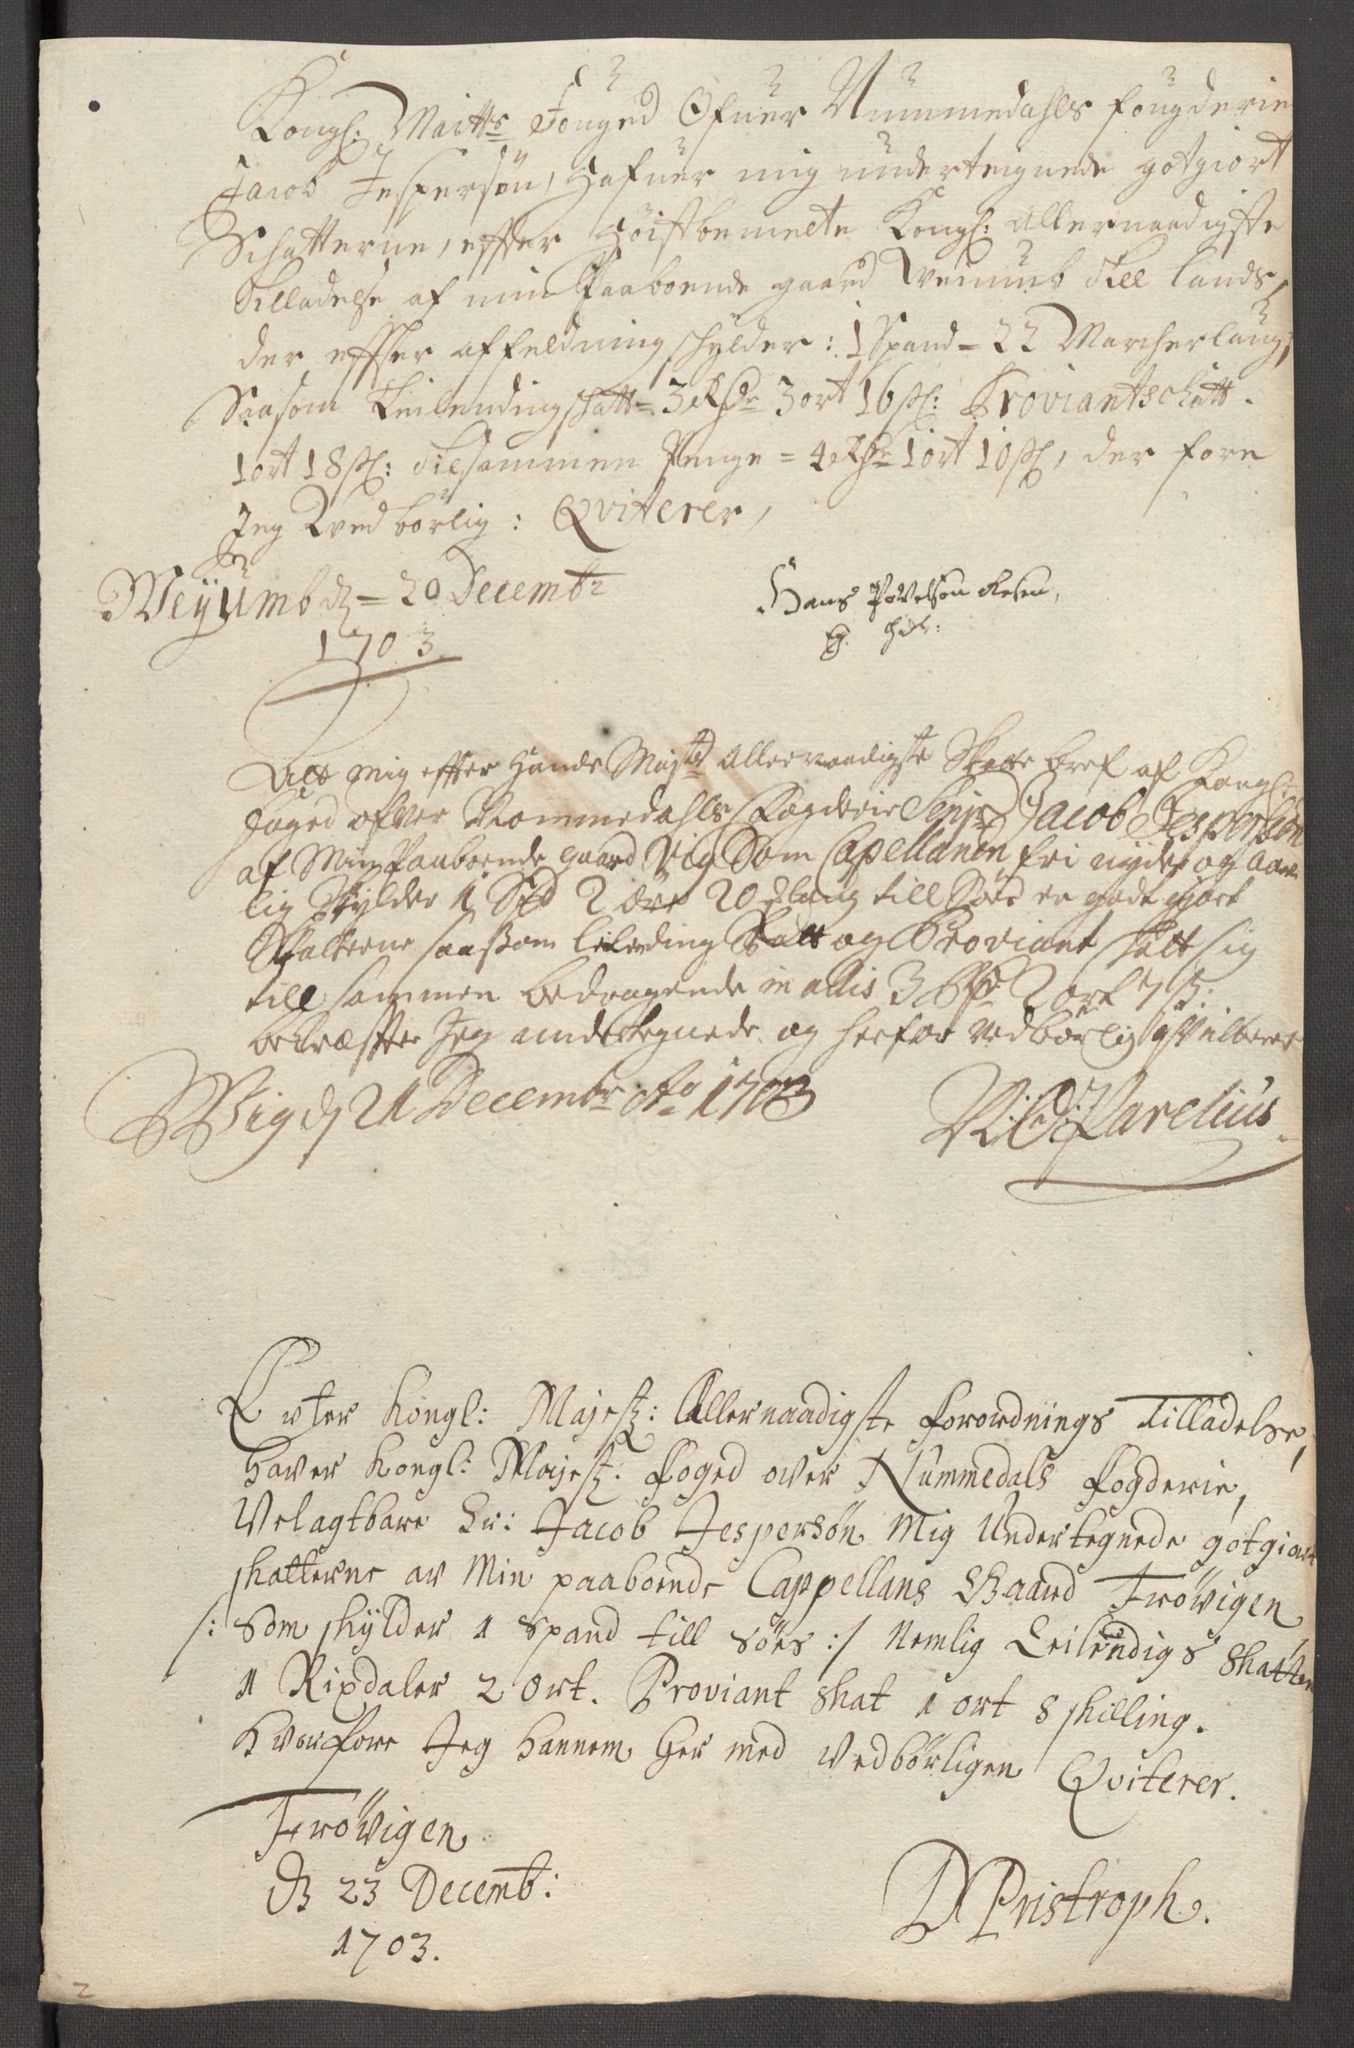 Kongl: Maitts Fouged Ofuer Nummedahls fougderie
Jacob Jespersøn, Hafuer mig underteignede gotgiort
Schatterne, effter Høistbemelte Kongl: Allernaadigste
Tilladelse af min Paaboende gaard Weiumb Till lands,
der effter affeldning schylder: 1 Spand = 22 Marcherlaug,
Saasom Leilendingschatt = 3 Rixdr 3 ort 16 sl: Proviantschatt.
1 ort 18 sl: Tilsammen Penge = 4 Rdr 1 ort 10 sl, der fore
Jeg Ved børlig: Qviterer,
Weyumb d = 20 Decembr
1703
Hans Povelsøn Resen,
Eg. Hdr:
Att Mig effter Hands Majts Allernaadigste Skatte bref af Kongl:
Foged ofver Nommedahls Fogderie Senjr Jacob Jespersøn
af Min Paaboende gaard Vig Som Capellanen fri nyder og aar
lig Skylder 1 Spd 2 øre 20 Mlaug till Søes er godt gjort
Skatterne saasom leilending Skatt og Proviant skatt sig
till sammen bedragende in alis 3 Rdr 2 ort 7 s:
bekræffter Jeg undertegnede og herfor vedbørlig qvitterer
Wig d 21 Decembr Ao 1703
N: Parelius
Evter Kongl: Majestz: Allernaadigste forordnings Tilladelse,
haver Kongl: Majestz: Foged over Nummedals Fogderie,
Velagtbare Sr: Jacob Jespersøn Mig Undertegnede gotgiort
skatterne av Min paaboende Cappellans Gaard Frøvigen
/: Som skylder 1 Spand till søes :/ Nemlig Leilendigs Skatten
1 Rixdaler 2 Ort. Proviant skat 1 ort 8 skilling.
hvorfore Jeg hannem her med vedbørligen Qviterer.
Frøvigen
d 23 Decemb:
1703.
D Pristroph.
2